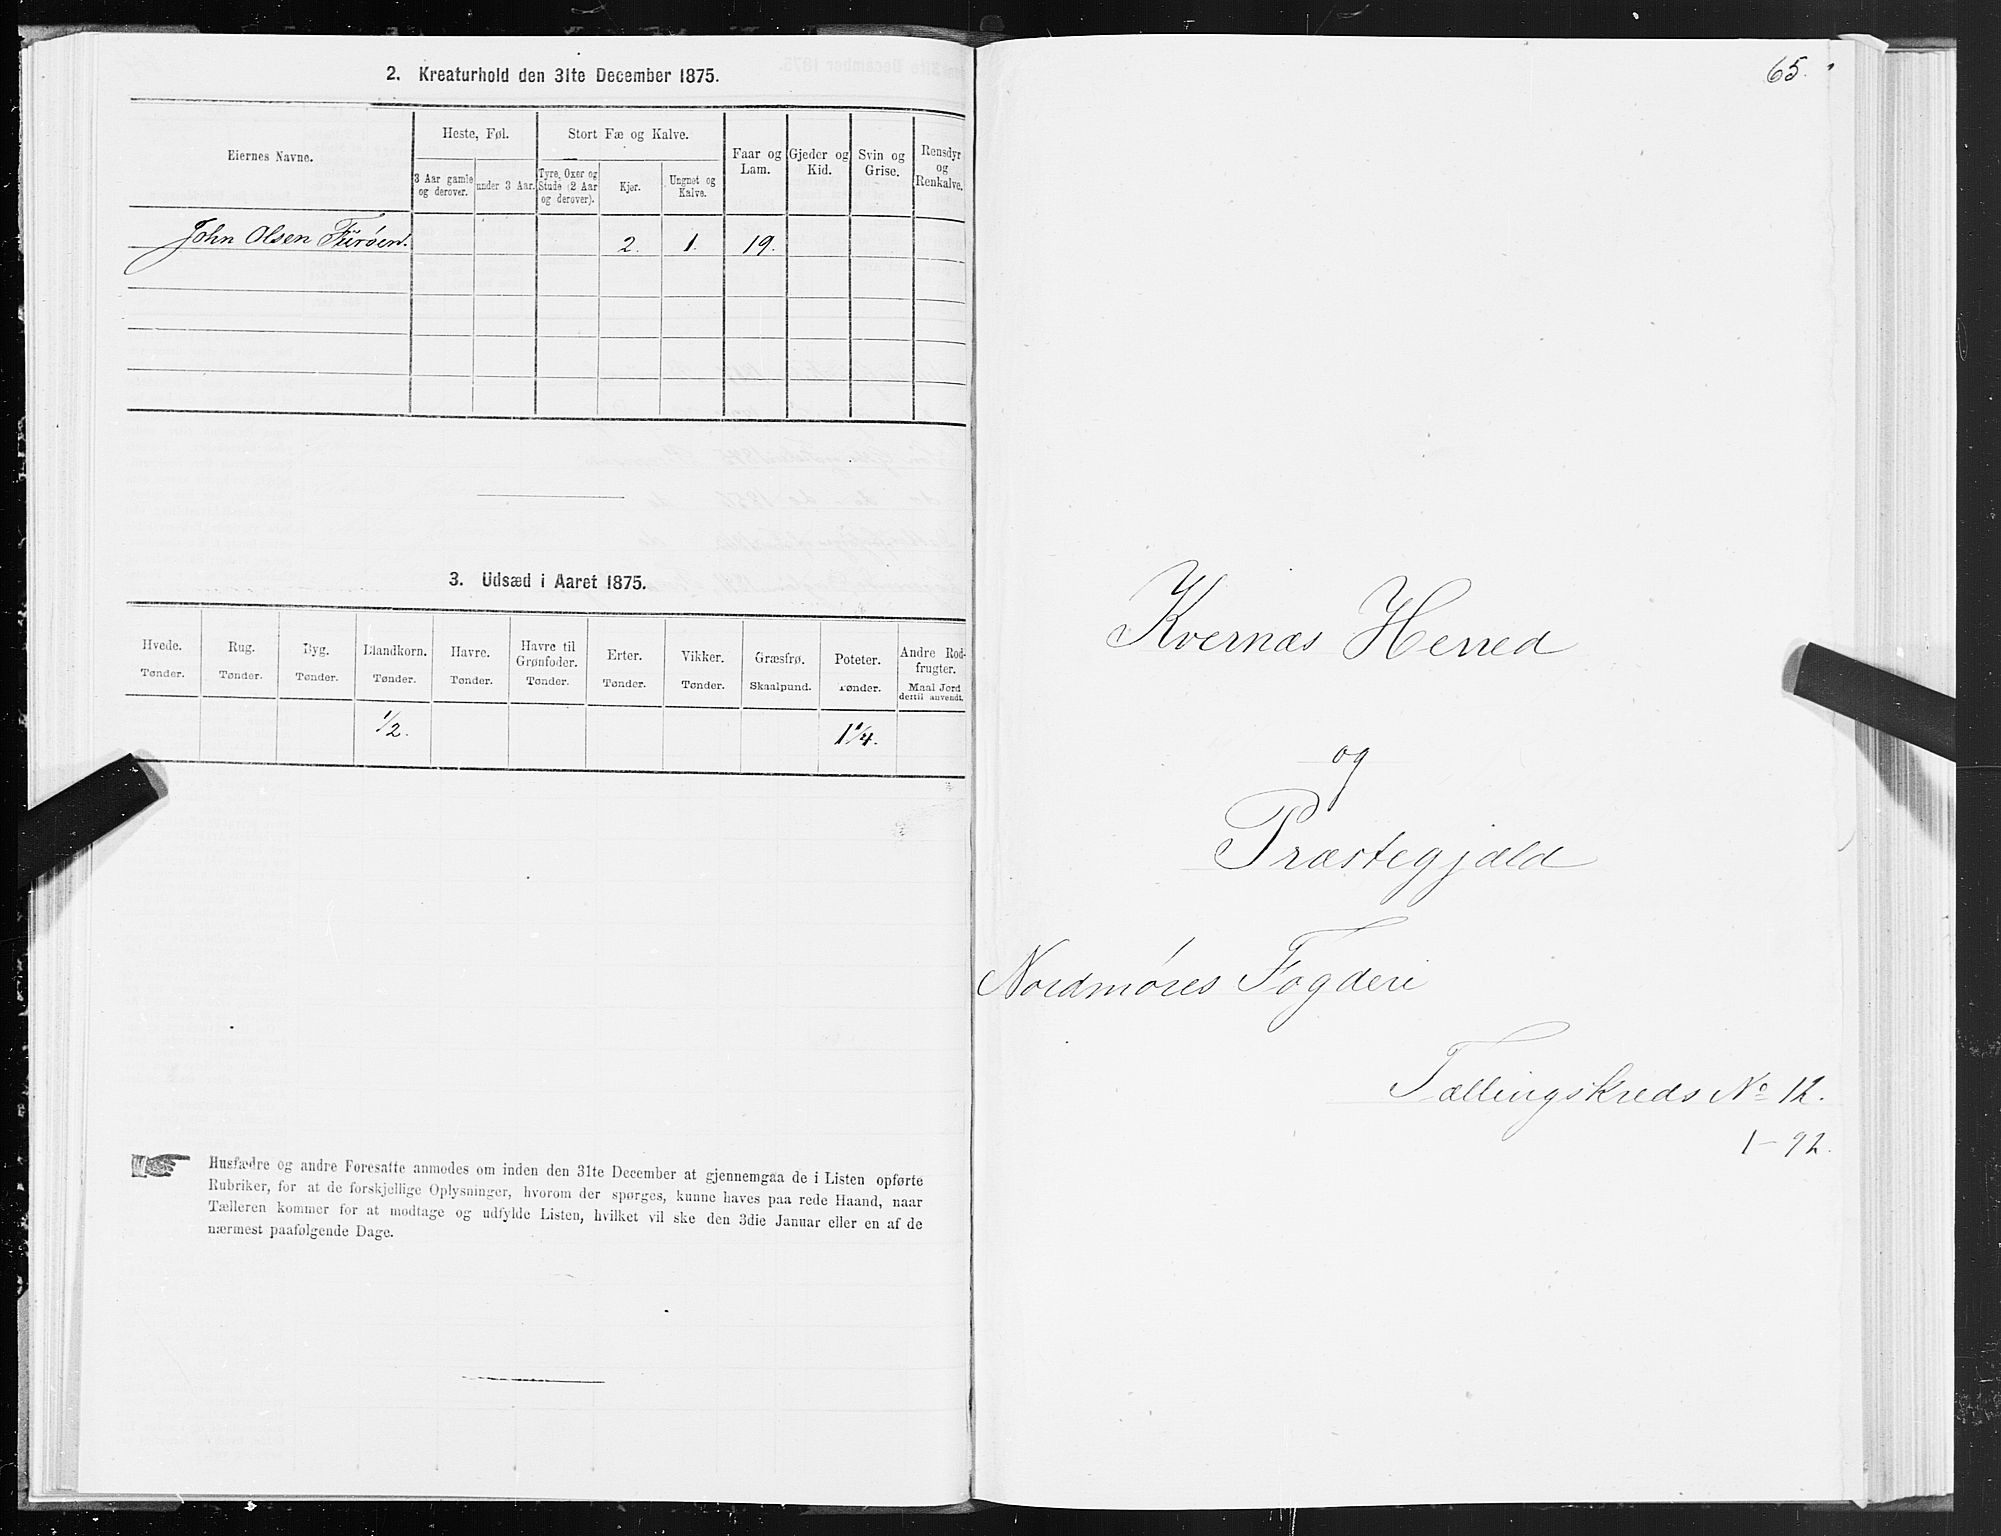 2. Kreaturhold den 31te December 1875.
Eiernes Navne.
Heste, Føl.
Stort Fæ og Kalve.
Faar og Lam.
Gjeder og Kid.
Svin og Grise.
Rensdyr og Renkalve.
3 Aar gamle og derover.
under 3 Aar.
Tyre, Oxer og Stude (2 Aar og derover).
Kjør.
Ungnøt og Kalve.
John Olsen Furøen. 2. 1. 19.
3. Udsæd i Aaret 1875.
Hvede. Rug. Byg. Blandkorn. Havre. Havre til Grønfoder. Erter. Vikker. Græsfrø. Poteter. Andre Rodfrugter.
Tønder. Tønder. Tønder. Tønder. Tønder. Tønder. Tønder. Tønder. Skaalpund. Tønder. Maal Jord dertil anvendt.
1/2. 1 1/4.
Husfædre og andre Foresatte anmodes om inden den 31te December at gjennemgaa de i Listen opførte
Rubriker, for at de forskjellige Oplysninger, hvorom der spørges, kunne haves paa rede Haand, naar
Tælleren kommer for at modtage og udfylde Listen, hvilket vil ske den 3die Januar eller en af de
nærmest paafølgende Dage.
65.
Kvernæs Herred
og
Præstegjæld
Nordmøres Fogderi
Tællingskreds No 12.
1-92.